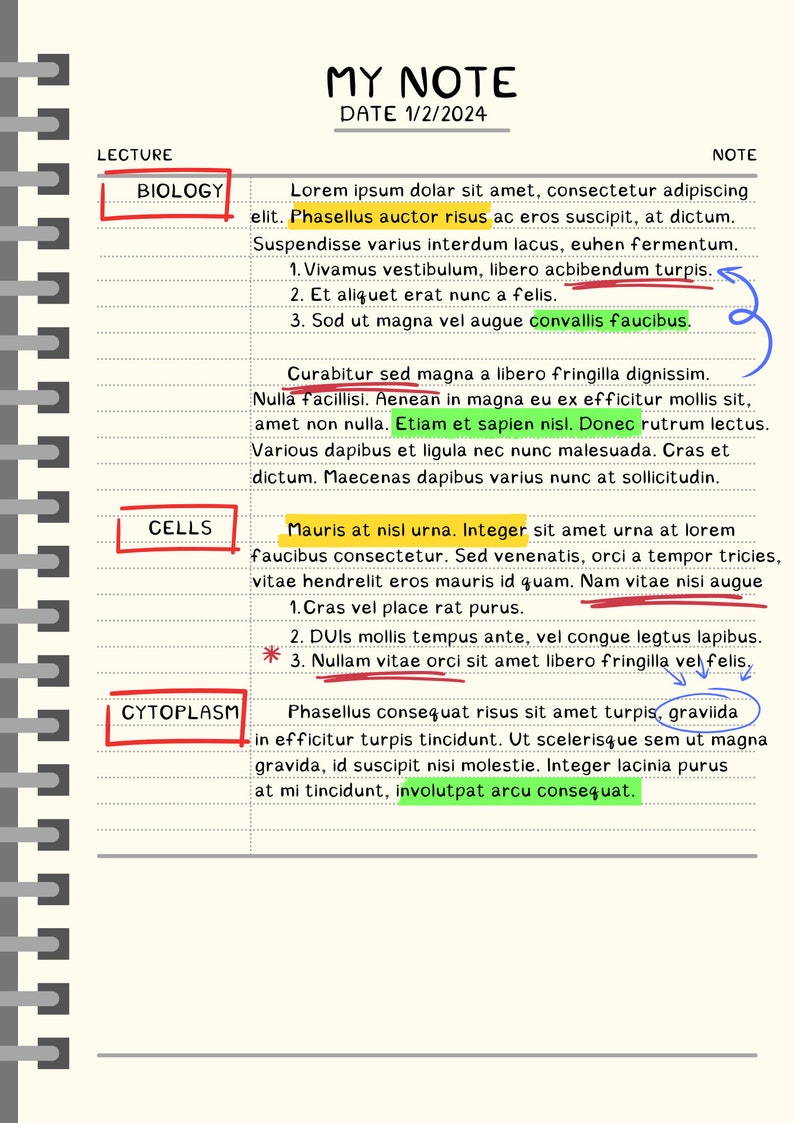 MY NOTE
DATE 1/2/2024
LECTURE NOTE
BIOLOGY
Lorem ipsum dolar sit amet, consectetur adipiscing
elit. Phasellus auctor risus ac eros suscipit, at dictum.
Suspendisse varius interdum lacus, euhen fermentum.
1. Vivamus vestibulum, libero acbibendum turpis.
2. Et aliquet erat nunc a felis.
3. Sod ut magna vel augue convallis faucibus.
Curabitur sed magna a libero fringilla dignissim.
Nulla facillisi. Aenean in magna eu ex efficitur mollis sit,
amet non nulla. Etiam et sapien nisl. Donec rutrum lectus.
Various dapibus et ligula nec nunc malesuada. Cras et
dictum. Maecenas dapibus varius nunc at sollicitudin.
CELLS
Mauris at nisl urna. Integer sit amet urna at lorem
faucibus consectetur. Sed venenatis, orci a tempor tricies,
vitae hendrelit eros mauris id quam. Nam vitae nisi augue
1. Cras vel place rat purus.
2. DUIs mollis tempus ante, vel congue legtus lapibus.
* 3. Nullam vitae orci sit amet libero fringilla vel felis.
CYTOPLASM
Phasellus consequat risus sit amet turpis, graviida
in efficitur turpis tincidunt. Ut scelerisque sem ut magna
gravida, id suscipit nisi molestie. Integer lacinia purus
at mi tincidunt, involutpat arcu consequat.